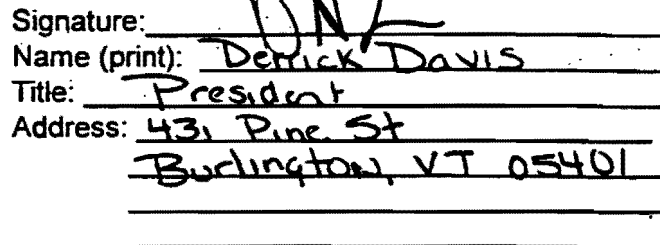 Signature:
Name (print): Derrick Davis
Title: President
Address: 431 Pine St
Burlington, VT 05401